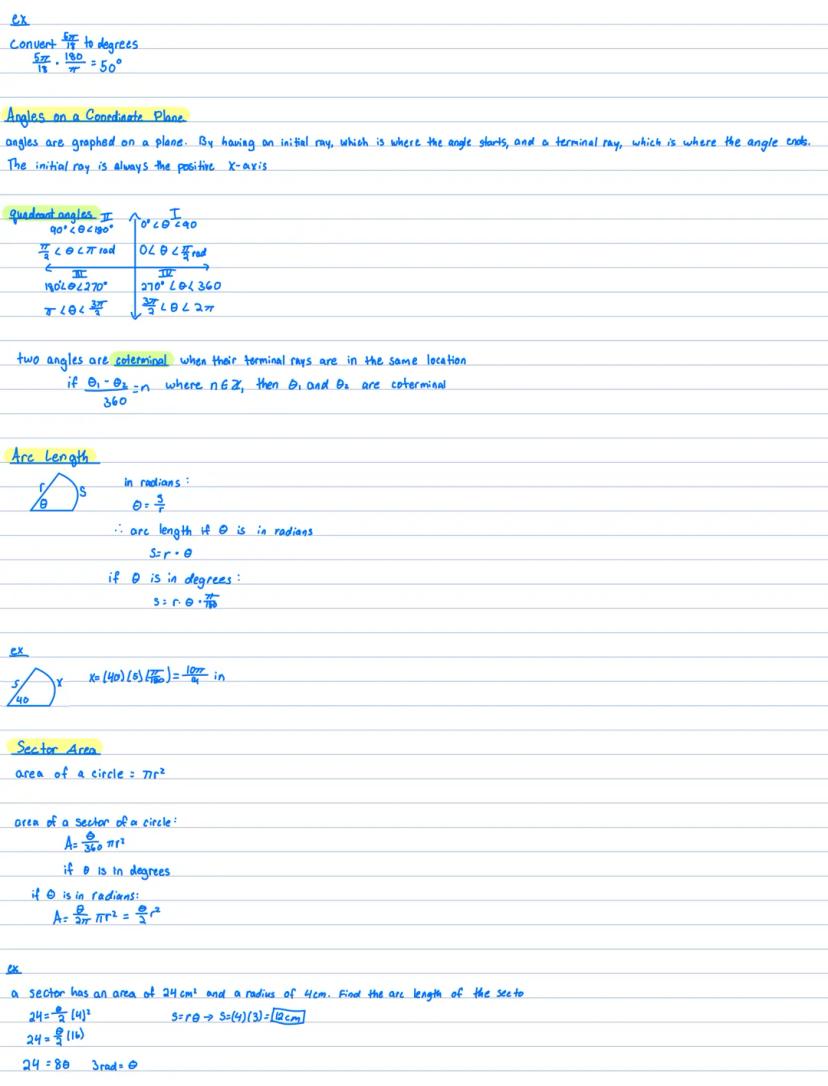 ex
Convert 5π/18 to degrees
5π/18 · 180/π = 50°
Angles on a Coordinate Plane
angles are graphed on a plane. By having an initial ray, which is where the angle starts, and a terminal ray, which is where the angle ends.
The initial ray is always the positive x-axis
quadrant angles II I
90° < θ < 180° 0° < θ < 90
π/2 < θ < π rad 0 < θ < π/2 rad
III IV
180° < θ < 270° 270° < θ < 360
π < θ < 3π/2 3π/2 < θ < 2π
two angles are coterminal when their terminal rays are in the same location
if θ₁ - θ₂/360 = n where n ∈ ℤ, then θ₁ and θ₂ are coterminal
Arc Length
r θ S in radians:
θ = s/r
∴ arc length if θ is in radians
S = r · θ
if θ is in degrees:
s = r · θ · π/180
ex
5 40 x x = (40)(5)(π/180) = 10π/9 in
Sector Area
area of a circle = πr²
area of a sector of a circle:
A = θ/360 πr²
if θ is in degrees
if θ is in radians:
A = θ/2π πr² = θ/2 r²
ex
a sector has an area of 24 cm² and a radius of 4cm. Find the arc length of the secto
24 = θ/2 (4)² s = rθ → s = (4)(3) = 12cm
24 = θ/2 (16)
24 = 8θ 3 rad = θ